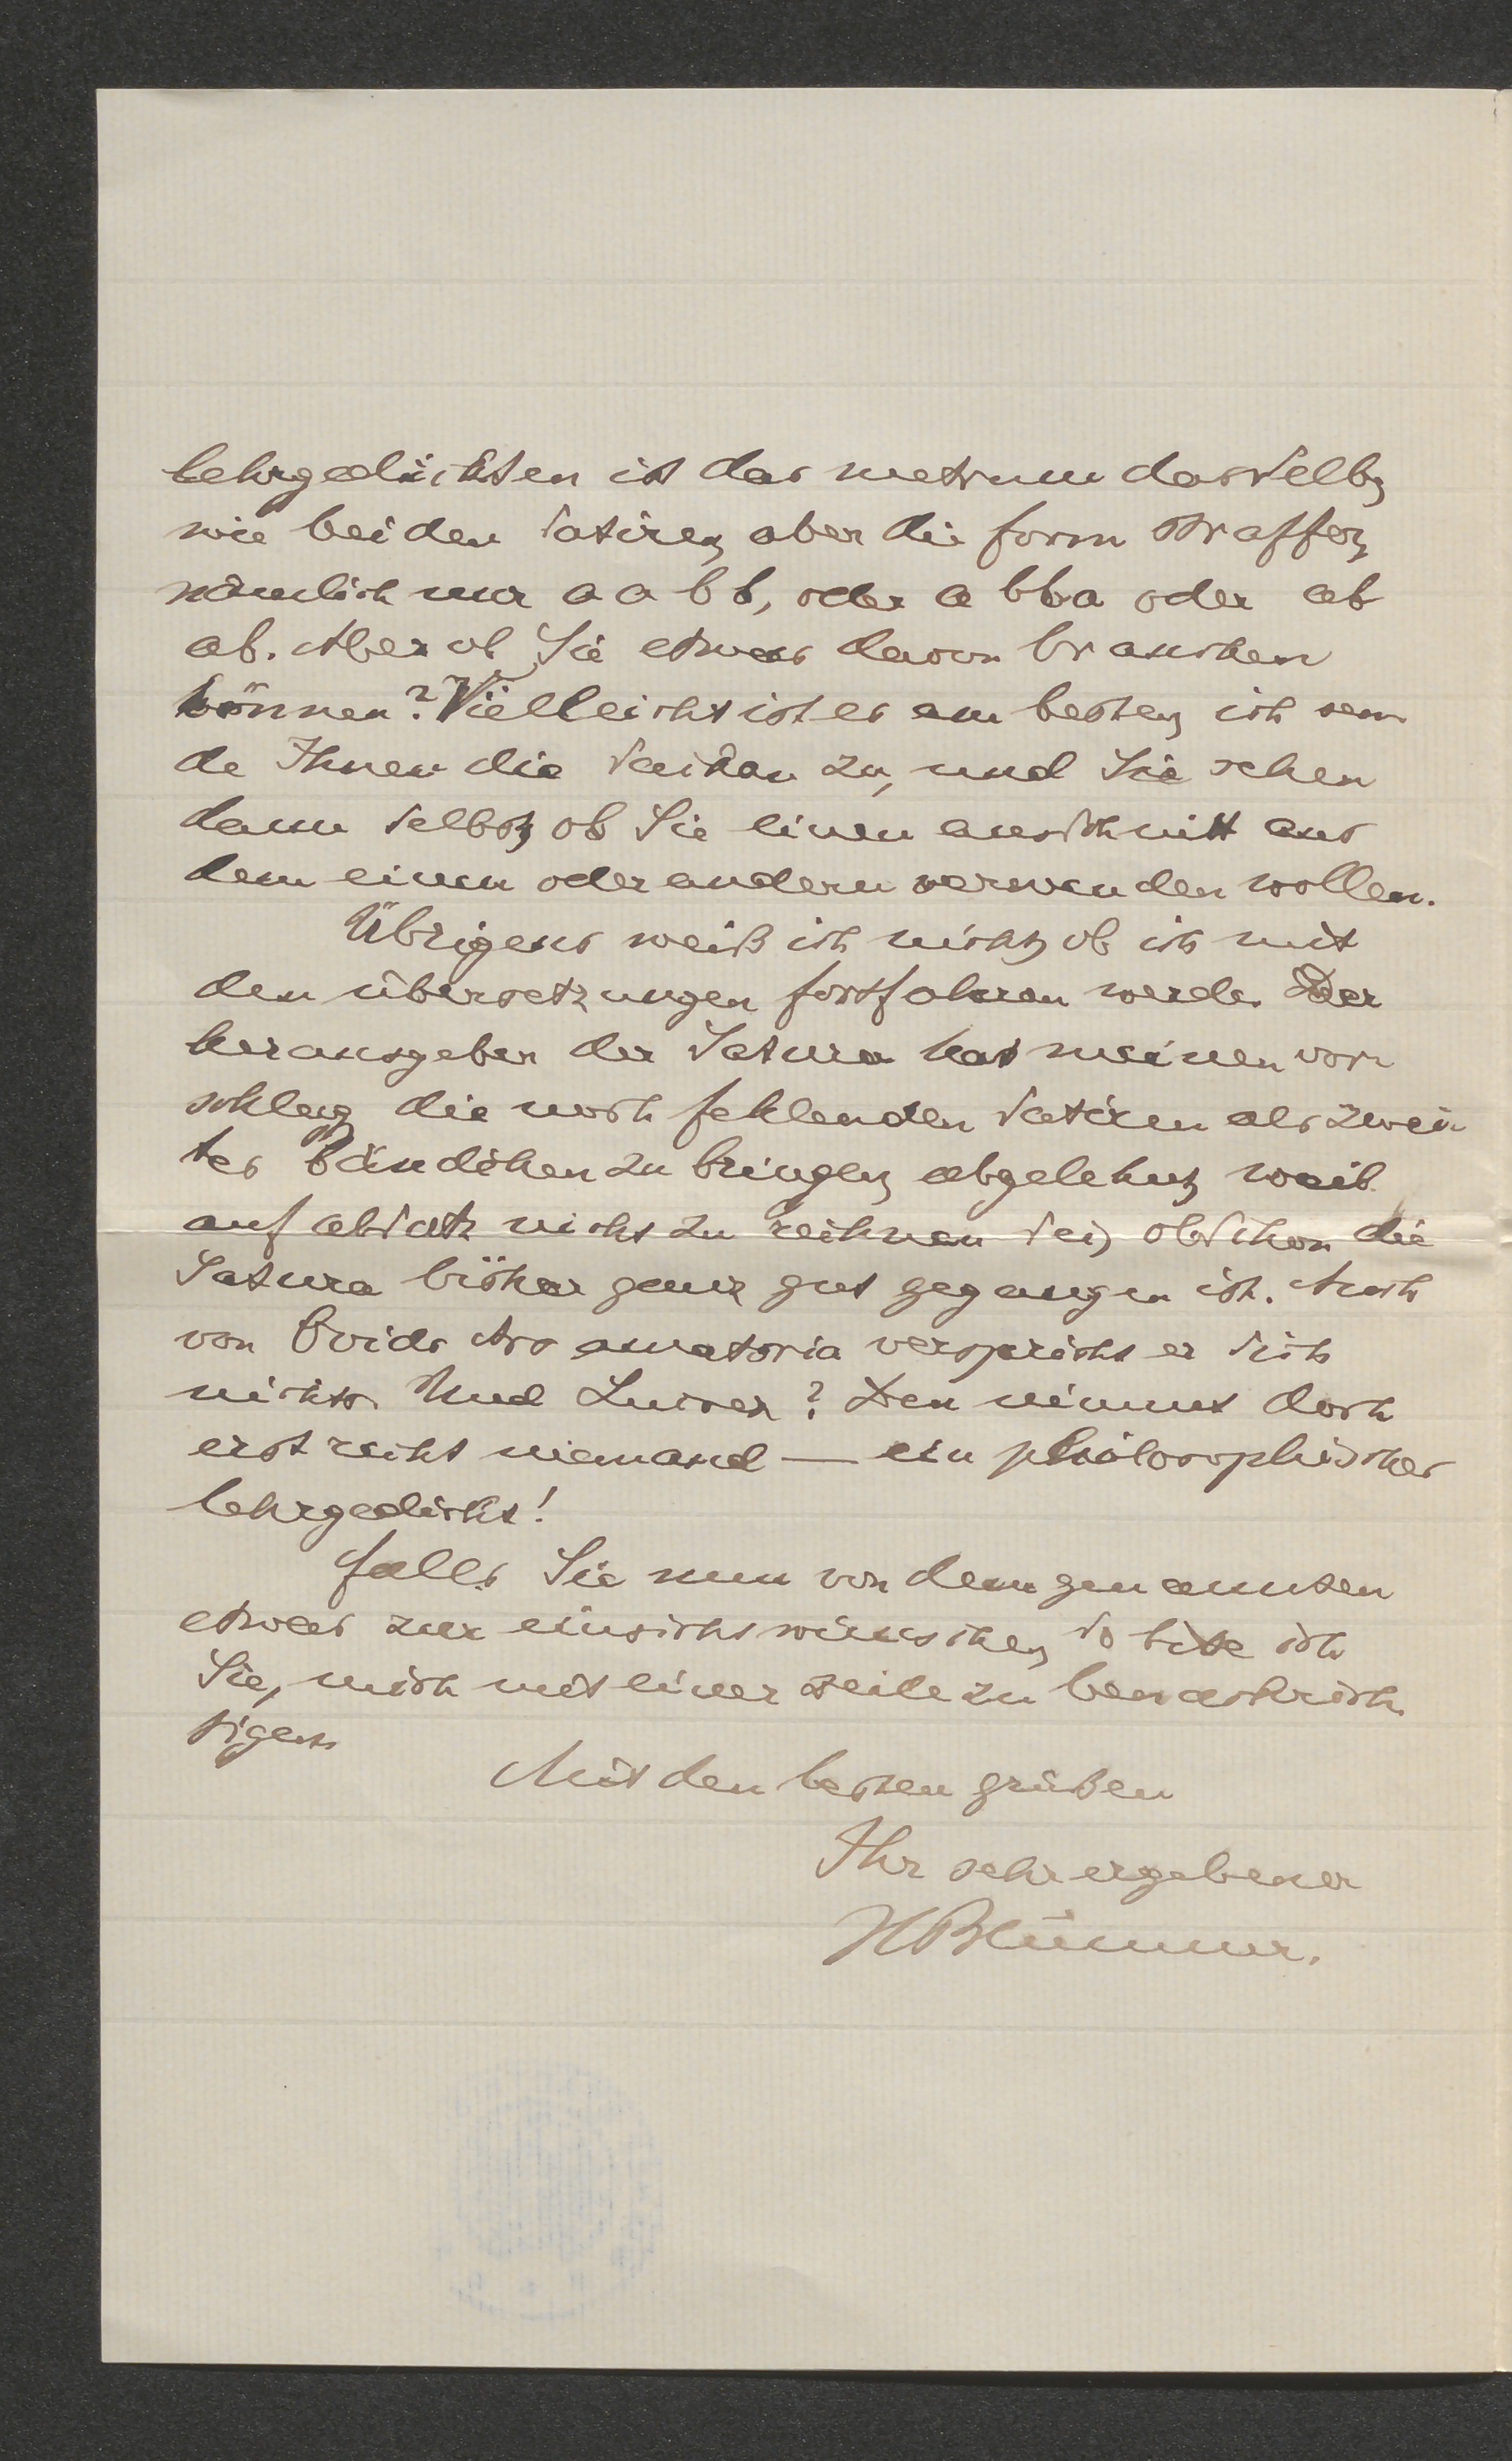 lehrgedichten ist das metrum dasselbe,
wie bei den satiren, aber die form straffer,
nämlich nur a a b b, oder a b b a oder a b
a b. Aber ob Sie etwas davon brauchen
können? Vielleicht ist es am besten, ich sen-
de Ihnen die sachen zu, und Sie sehen
dann selbst, ob Sie einen ausschnitt aus
dem einen oder andern verwenden wollen.
Übrigens weiß ich nicht, ob ich mit
den übersetzungen fortfahren werde. Der
herausgeber der Satura hat meinen vor-
schlag, die noch fehlenden satiren als zwei-
tes bändchen zu bringen, abgelehnt, weil
auf absatz nicht zu rechnen sei, obschon die
Satura bisher ganz gut gegangen ist. Auch
von Ovids Ars amatoria verspricht er sich
nichts. Und Lucrez? Den nimmt doch
erst recht niemand — ein philosophisches
lehrgedicht!
Falls Sie nun von dem genannten
etwas zur einsicht wünschen, so bitte ich
Sie, mich mit einer zeile zu benachrich-
tigen.
Mit den besten grüßen
Ihr sehr ergebener
HBlümner.